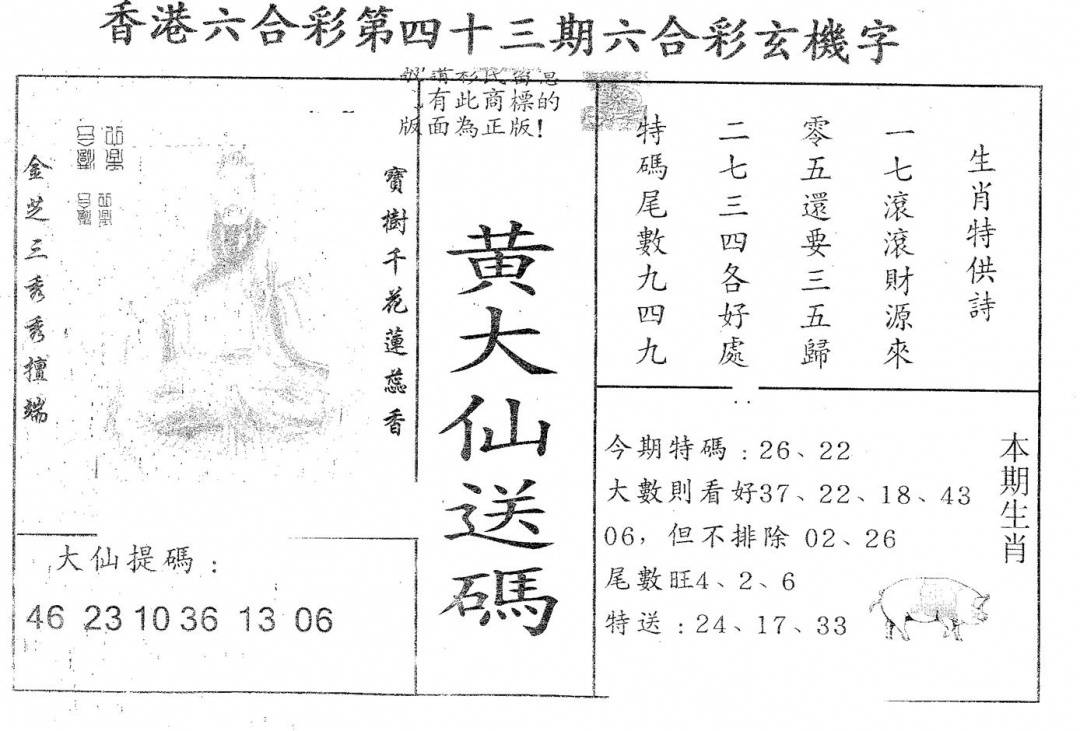 香港六合彩第四十三期六合彩玄機字
有此商標的
版面為正版!
生肖特供詩
一七滾滾財源來
零五還要三五歸
二七三四各好處
特碼尾數九四九
黄大仙送碼
寶樹千花蓮蕊香
金芝三秀秀擅端
大仙提碼：
46 23 10 36 13 06
本期生肖
今期特碼：26、22
大數則看好37、22、18、43
06，但不排除 02、26
尾數旺4、2、6
特送：24、17、33